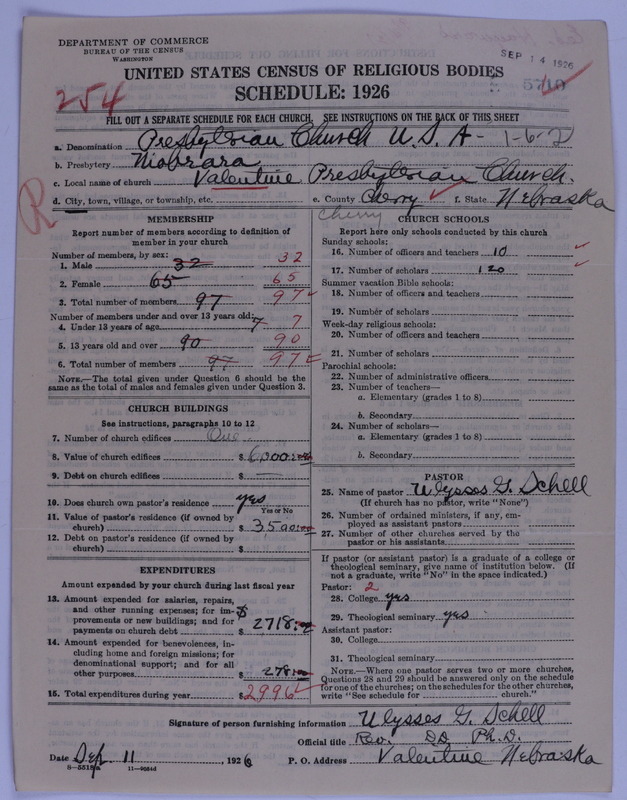 DEPARTMENT OF COMMERCE
BUREAU OF THE CENSUS
WASHINGTON
SEP 14 1926
UNITED STATES CENSUS OF RELIGIOUS BODIES
5710
SCHEDULE: 1926
254
FILL OUT A SEPARATE SCHEDULE FOR EACH CHURCH. SEE INSTRUCTIONS ON THE BACK OF THIS SHEET
a. Denomination Presbyterian Church U.S.A- 1-6-2
b. Presbytery Niobrara
c. Local name of church Valentine Presbyterian Church.
d. City, town, village, or township, etc. e. County Cherry f. State Nebraska
R
Cherry
MEMBERSHIP
Report number of members according to definition of member in your church
Number of members, by sex:
1. Male 32 32
2. Female 65 65
3. Total number of members 97 97
Number of members under and over 13 years old:
4. Under 13 years of age 7 7
5. 13 years old and over 90 90
6. Total number of members 97 97
NOTE.—The total given under Question 6 should be the same as the total of males and females given under Question 3.
CHURCH BUILDINGS
See instructions, paragraphs 10 to 12
7. Number of church edifices One
8. Value of church edifices $ 6,000.00
9. Debt on church edifices $
10. Does church own pastor's residence yes
Yes or No
11. Value of pastor's residence (if owned by church) $ 3500.00
12. Debt on pastor's residence (if owned by church) $
EXPENDITURES
Amount expended by your church during last fiscal year
13. Amount expended for salaries, repairs, and other running expenses; for improvements or new buildings; and for payments on church debt $ 2718.00
14. Amount expended for benevolences, including home and foreign missions; for denominational support; and for all other purposes $ 278.00
15. Total expenditures during year $ 2996
CHURCH SCHOOLS
Report here only schools conducted by this church
Sunday schools:
16. Number of officers and teachers 10
17. Number of scholars 120
Summer vacation Bible schools:
18. Number of officers and teachers
19. Number of scholars
Week-day religious schools:
20. Number of officers and teachers
21. Number of scholars
Parochial schools:
22. Number of administrative officers
23. Number of teachers—
a. Elementary (grades 1 to 8)
b. Secondary
24. Number of scholars—
a. Elementary (grades 1 to 8)
b. Secondary
PASTOR
25. Name of pastor Ulysses G. Schell
(If church has no pastor, write "None")
26. Number of ordained ministers, if any, employed as assistant pastors
27. Number of other churches served by the pastor or his assistants
If pastor (or assistant pastor) is a graduate of a college or theological seminary, give name of institution below. (If not a graduate, write "No" in the space indicated.)
Pastor: 2
28. College yes
29. Theological seminary yes
Assistant pastor:
30. College
31. Theological seminary
NOTE.—Where one pastor serves two or more churches, Questions 28 and 29 should be answered only on the schedule for one of the churches; on the schedules for the other churches, write "See schedule for church."
Signature of person furnishing information Ulysses G. Schell
Official title Rev. DD Ph.D.
Date Sep. 11, 1926 P. O. Address Valentine Nebraska
8—5518a